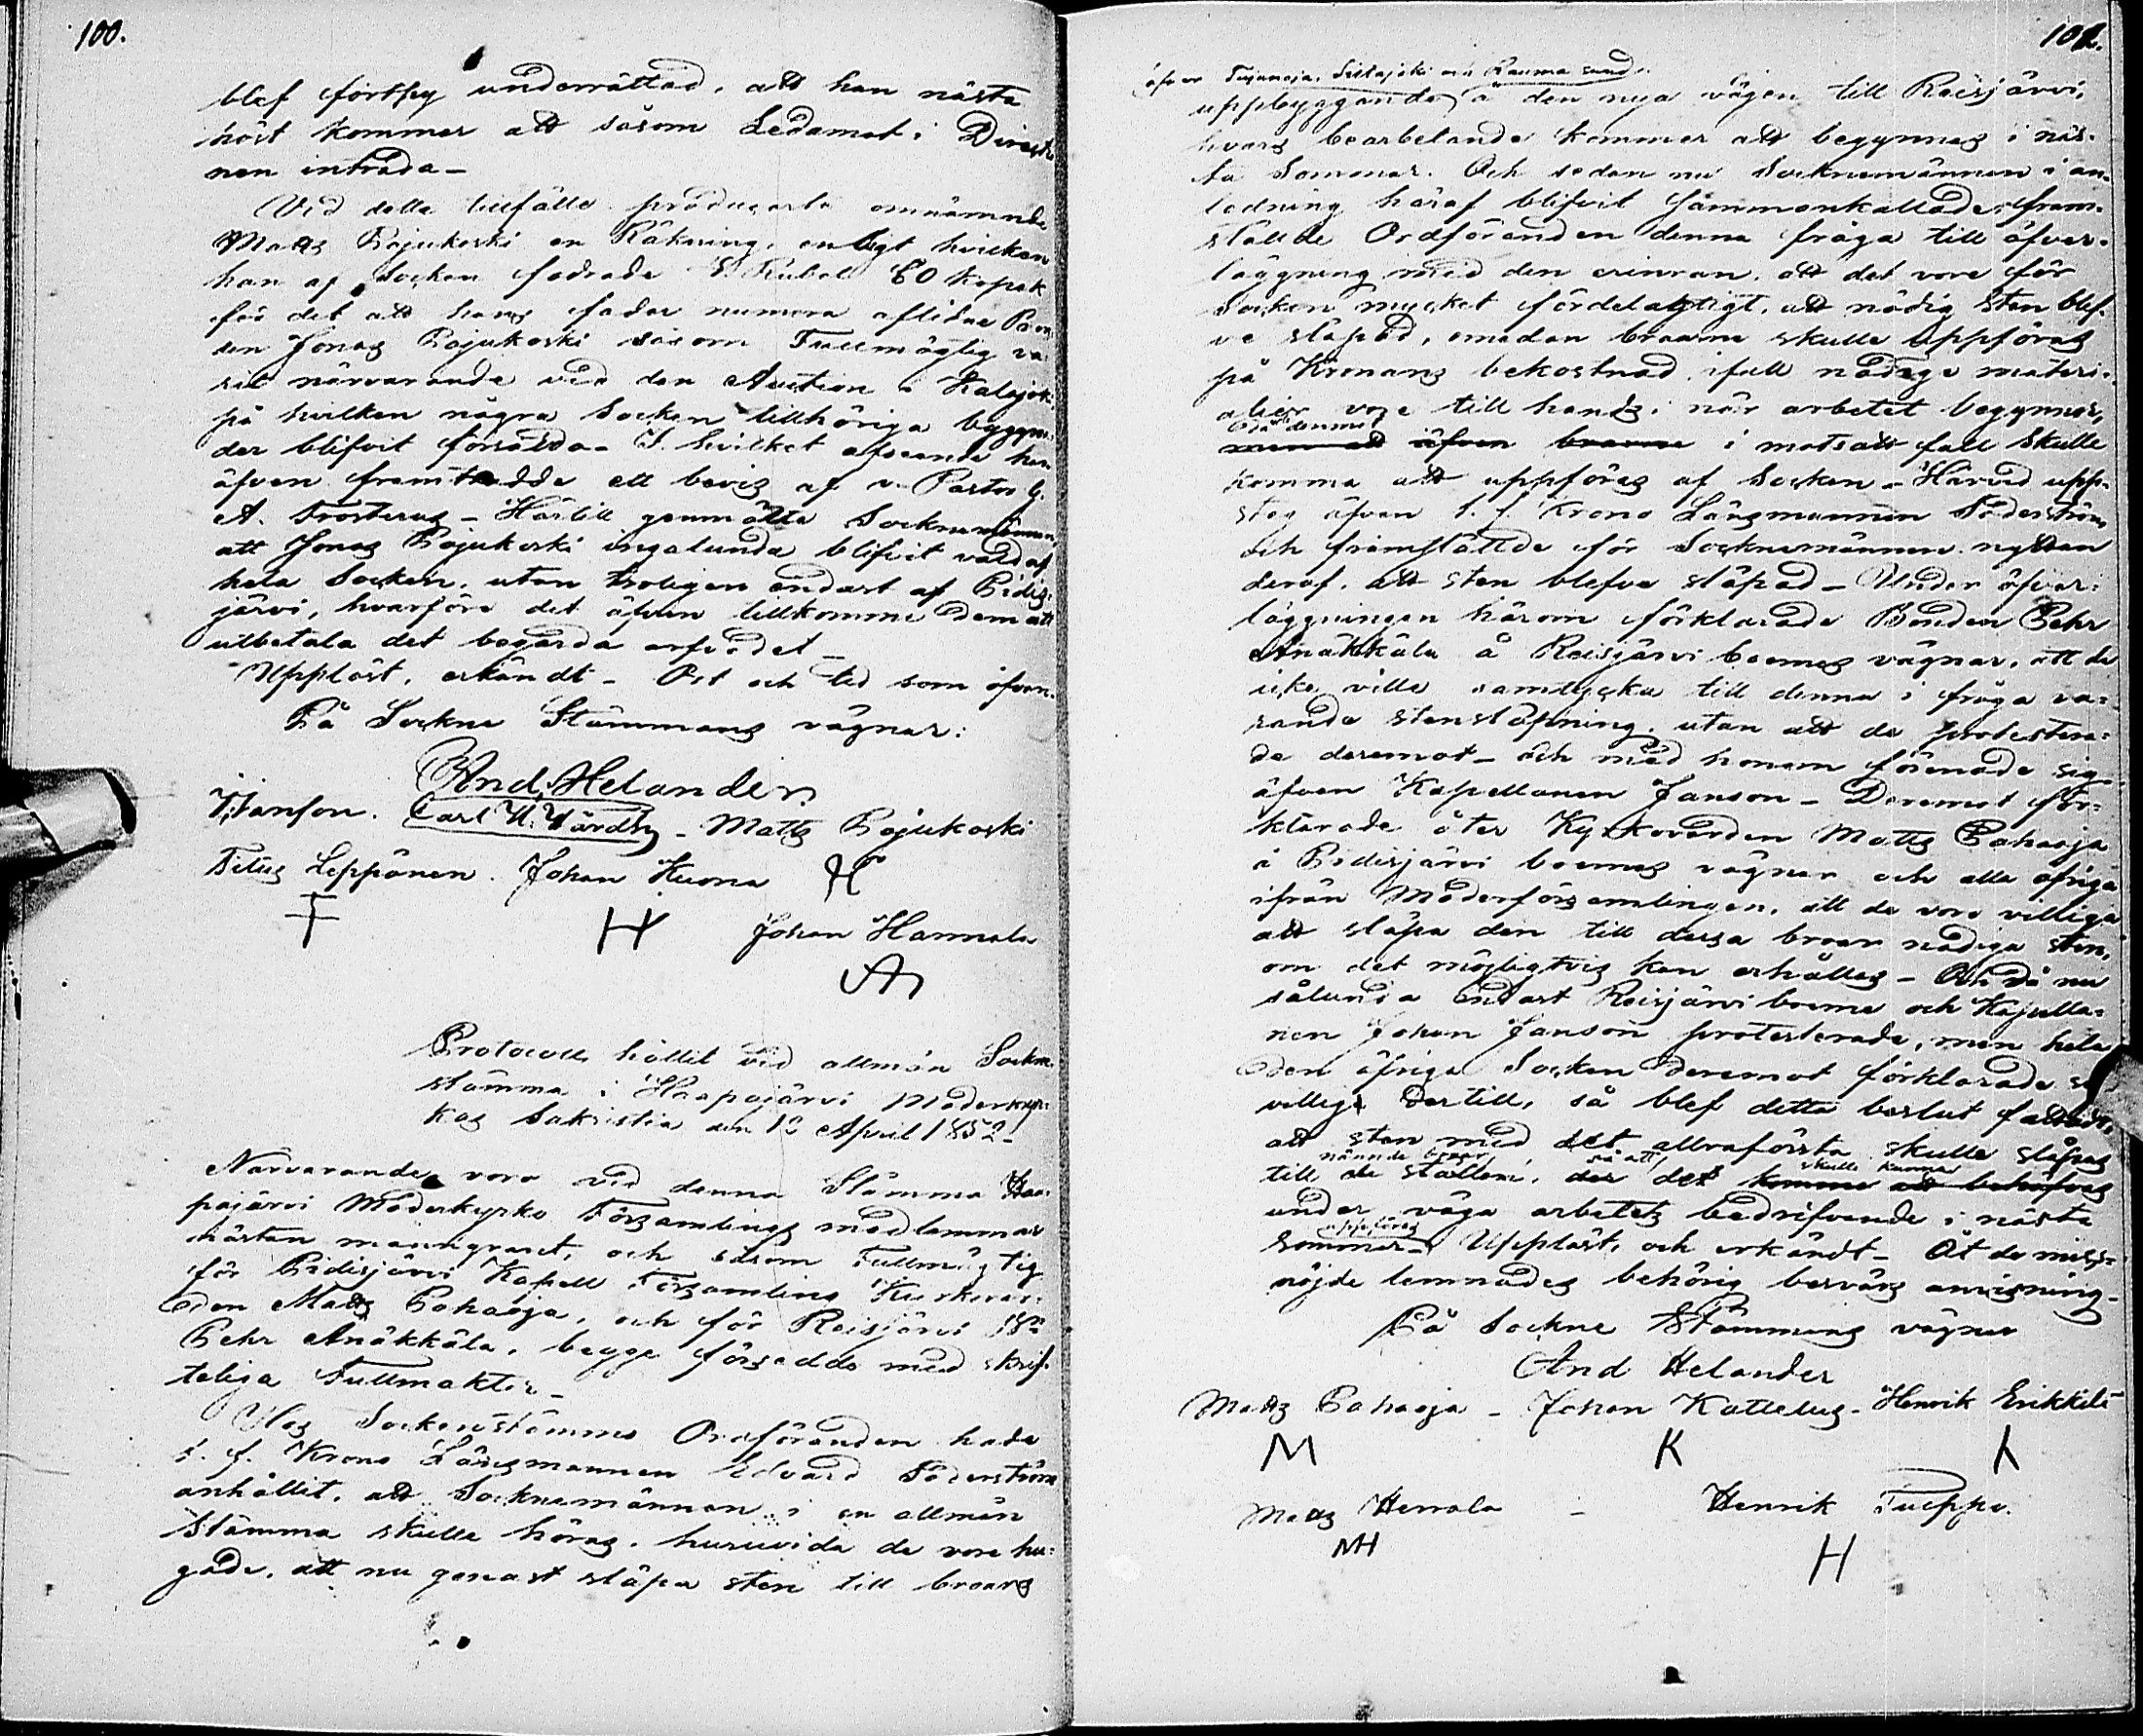 100.
blef förthy underrättad, att han nästa
höst kommer att såsom Ledamot i Direct
nen inträda_
Vid detta tillfälle producerte omnämnde
Matts Pajukoski en Räkning, enligt hvilken
han af Socken fodrade Rubel 60 Kopek
för det att hans fader numera aflidne Bon
den Jonas Pajukoski såsom Fullmägtig va
rit närvarande vid den Auction i Kalajok
på hvilken några Socken tillhöriga byggna
der blifvit försålda_ I hvilket afseende han
äfven framtedde ett bevis af v. Pastor G.
A. Frosterus_ Härtill genmälte Socknemännen,
att Jonas Pajukoski ingalunda blifvit vald af
hela Socken, utan troligen endast af Pidis-
järvi, hvarföre det äfven tillkomme dem att
utbetala det begärda arfvodet_
Uppläst, erkändt_ Ort och tid som ofvan.
På Sockne Stämmans vägnar:
And. Helander.
J. Janson. Carl U. _ Matts Pajukoski
Titus Leppänen. Johan Kuona H
H Johan Hannula
Protocoll hållit vid allmän Sockne
stämma i Haapajärvi Moderkyr-
kas Sakristia den 12 April 1852_
Närvarande voro vid denna Stämma Haa-
pajärvi Moderkyrko Församlings medlemmar
nästan mangrant, och såsom Fullmägtig
för Pidisjärvi Kapell Församling Kyrkovär-
den Matts Pahaoja, och för Reisjärvi Bn
Pehr Anäkkälä, begge försedde med skrif-
teliga Fullmakter_
Hos Sockenstämmo Ordföranden hade
t. f. Krono Länsmannen Edvard Söderström
anhållit, att Socknemännen i en allmän
Stämma skulle höras, huruvida de vore hu-
gade, att nu genast släpa sten till broars
101.
öfver Tujuneja, Sillajoki och Rauma sund
uppbyggande å den nya vägen till Reisjärvi,
hvars bearbetande kommer att begynnas i näs-
ta Sommar. Och sedan nu Socknemännen i an-
ledning häraf blifvit sammankallade; fram-
ställde Ordföranden denna fråga till öfver-
läggning med den erinran, att det vore för
Socken mycket fördelagtigt, att nödig sten blef-
ve släpad, emedan broarne skulle uppföras
på Kronans bekostnad, ifall nödige materi-
alier vore till hands, när arbetet begynnes,
då demmot
men att äfven broarne i motsatt fall skulle
komma att uppföras af Socken_ Härvid upp-
steg äfven t. f. Krono Länsmannen Söderström
och framställde för Socknemännen nyttan
deraf, att sten blefve släpad_ Under öfver-
läggningen härom förklarade Bonden Pehr
Anäkkälä å Reisjärvi boernes vägnar, att de
icke ville samtycka till denna i fråga va-
rande stensläpning, utan att de protestera-
de deremot_ och med honom förenade sig
äfven Kapellanen Janson_ Deremot för-
klarade åter Kyrkovärden Matts Pahaoja
å Pidisjärvi boernes vägnar och alla öfriga
ifrån Moderförsamlingen, att de voro villiga
att släpa den till dessa broar nödiga sten,
om det möjligtvis kan erhållas_ Och då nu
sålunda endast Reisjärvi boerne och Kapella-
nen Johan Janson protesterade, men hela
den öfriga Socken deremot förklarade s
villige dertill, så blef detta beslut fattadt,
att sten med det allraförsta skulle släpas
nämnde broar, så att skulle kunna
till de ställen, der det komme att behöfvas
under väga arbetets bedrifvande i nästa
uppföras
Sommar_ Uppläst, och erkändt_ Åt de miss-
nöjde lemnades behörig besvärs anvisning_
På Sockne Stämmans vägnar
And Helander
Matts Pahaoja _ Johan Kattelus_ Henrik Erikkilä
M K
Matts Herrala _ Henrik Tueppo.
MH H